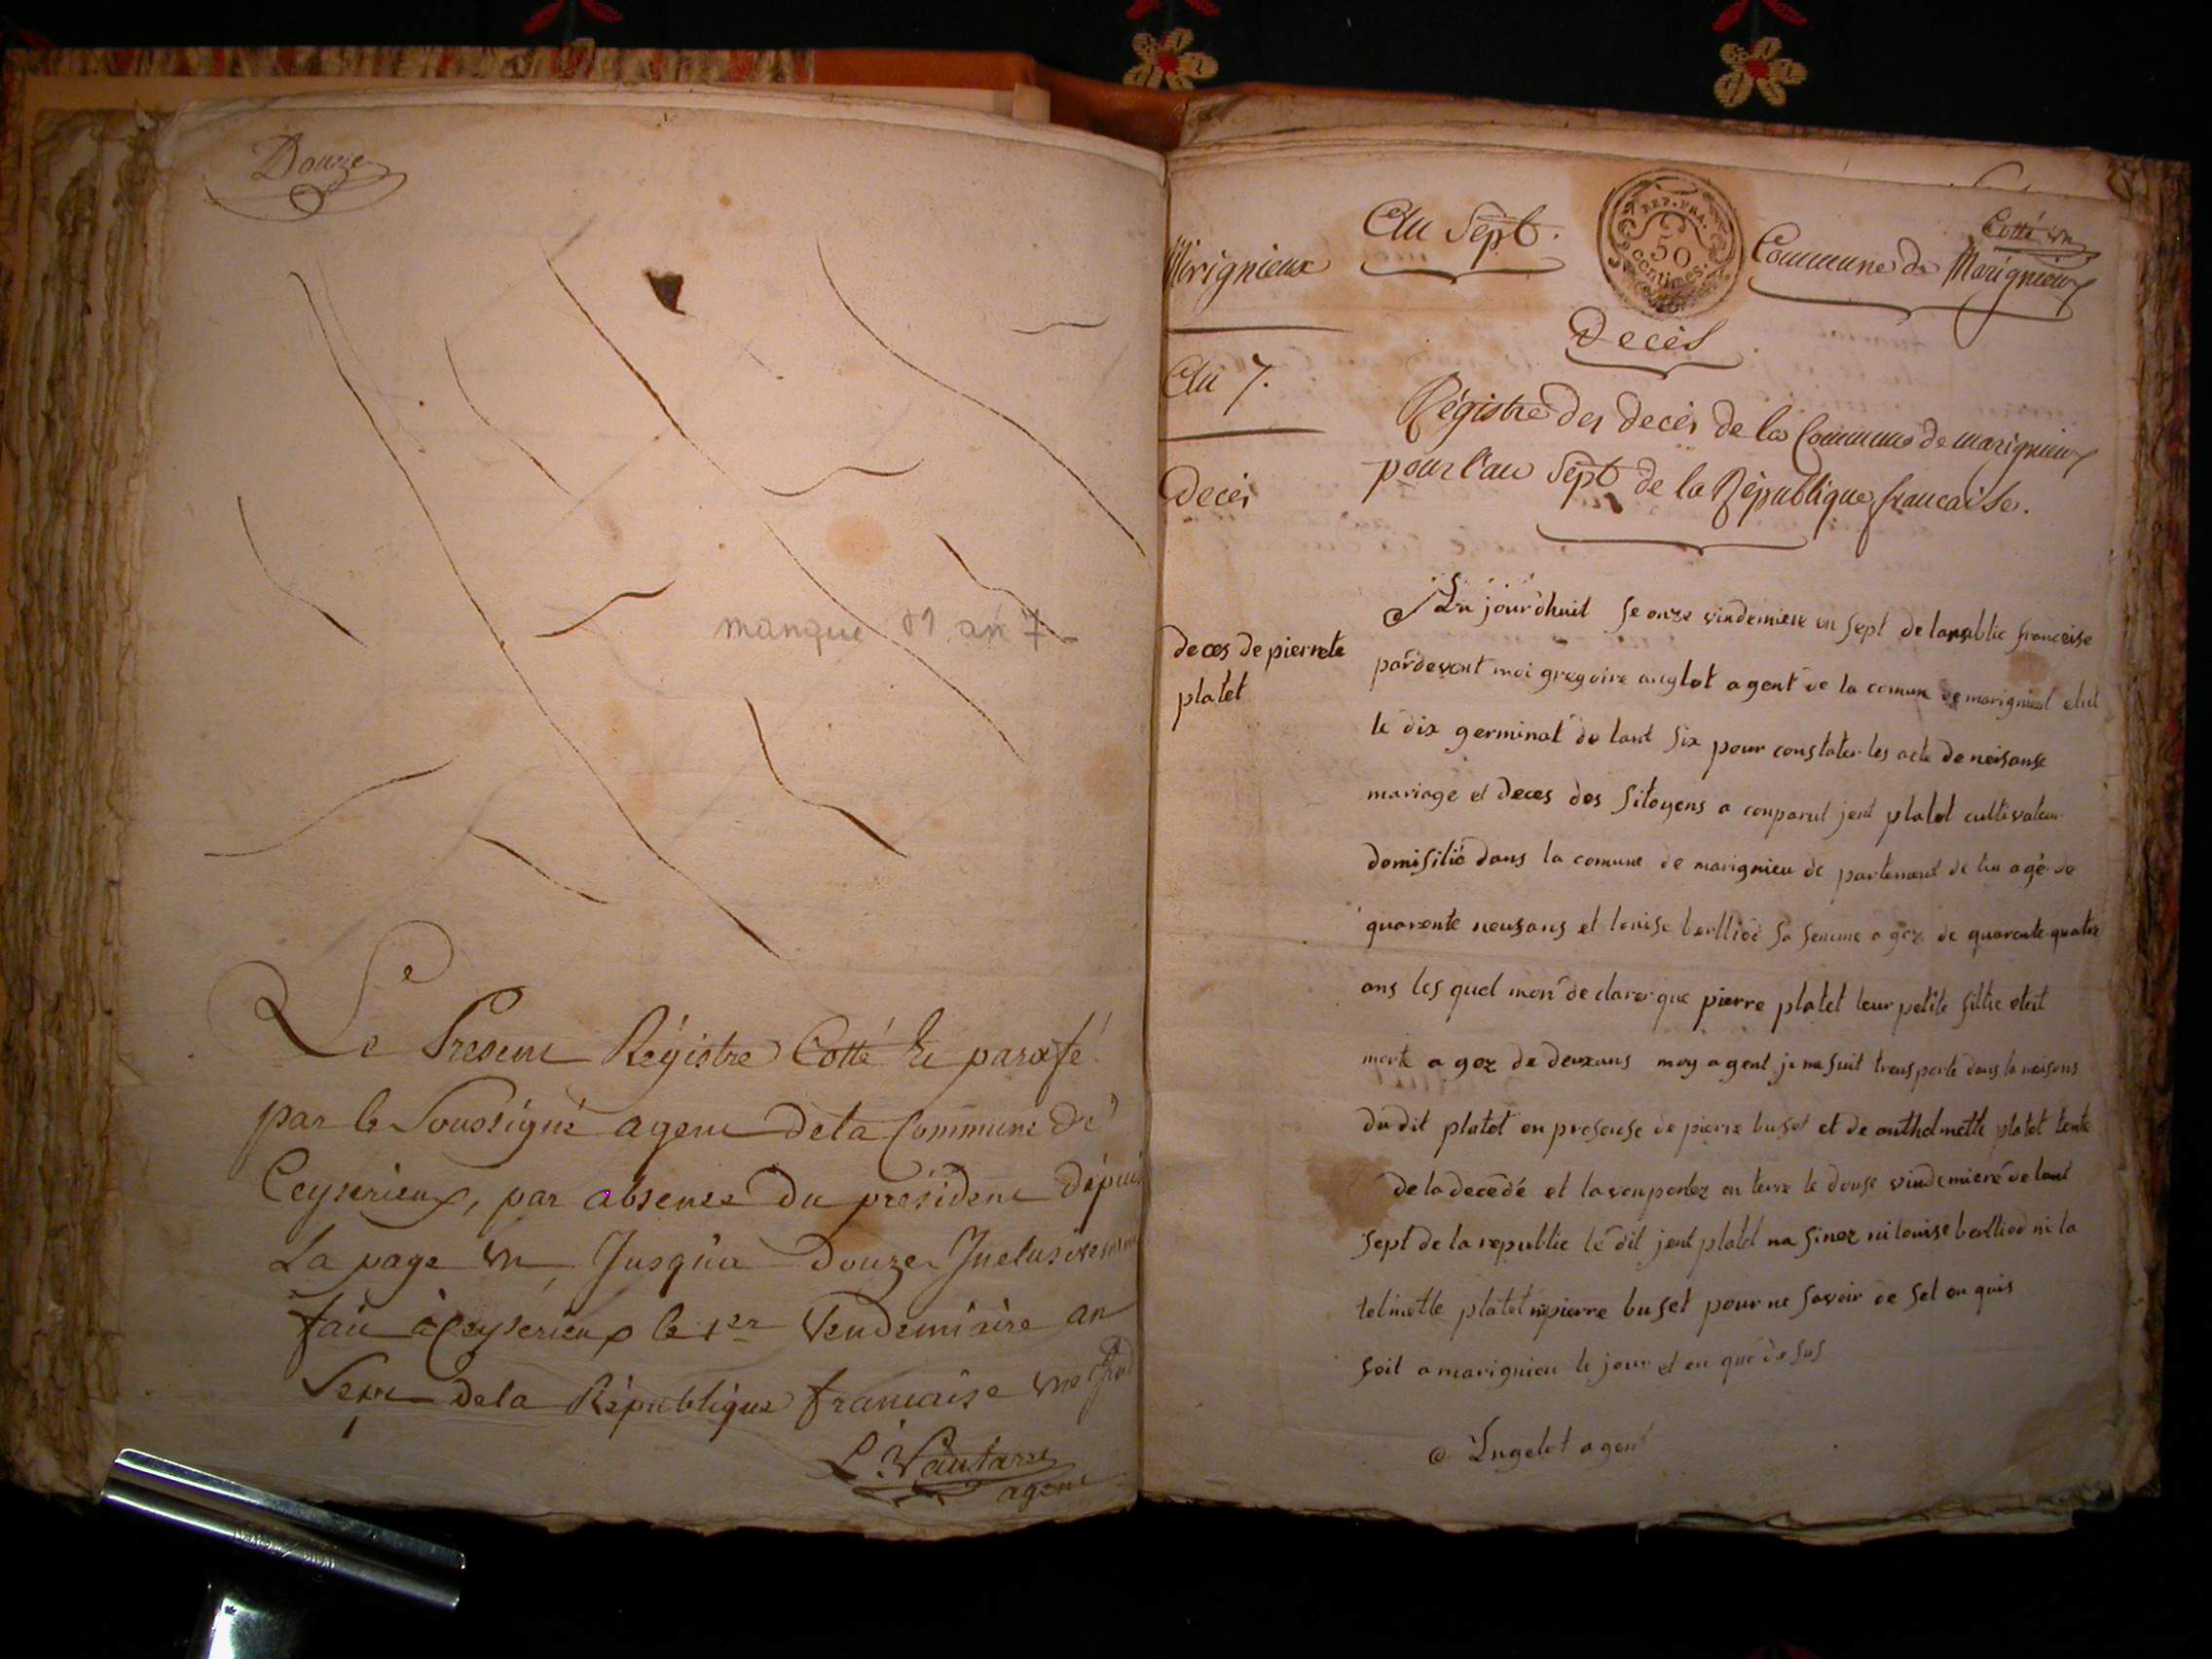 Douze
manque 01 an 7
Le Present Régistre Cotté et parafé
par le Soussigné agent dela Commune de
Ceyserieux, par absence du président dépuis
La page un Jusqu'a Douze Inclusivement
fait à Ceyserieux le 1er Vendemiaire an
Sept dela République francaise une
L. Vautaret
agent
Marignieux
An 7.
Decès
deces de pierrete
platet
An Sept.
REP. FRA.
50
centimes.
Cotté un
Commune de Marignieux
Decès
Régistre des decès de la Commune de marignieux
pour l'an Sept de la République francaise.
An jourdhuit le onze vindemiere an sept de larepublic franceise
pardevent moi gregoire anglot agent de la comune de marignieu elut
le dix germinat de lant six pour constater les acte de neisanse
mariage et deces des sitoyens a conparut jent platet cultivateur
domisilié dans la comune de marignieu de partement de lin agé de
quarente neufans et louise berlliod sa femme a gez de quarente quatre
ans les quel mon declarer que pierre platet leur petite fillie eteit
morte a gez de deuxans moy agent je me suit tresporte dans la meisons
du dit platet en presense de pierre buset et de anthelmette platet tente
de la decedé et lavonportez en terre le douse vindemiere de lant
sept de la republic le dit jent platet na sinez ni louise berlliod ni la
telmette platet ni pierre buset pour ne savoir de sel en quis
soit a marignieu le jour et en que desus
@ Lngelot agent